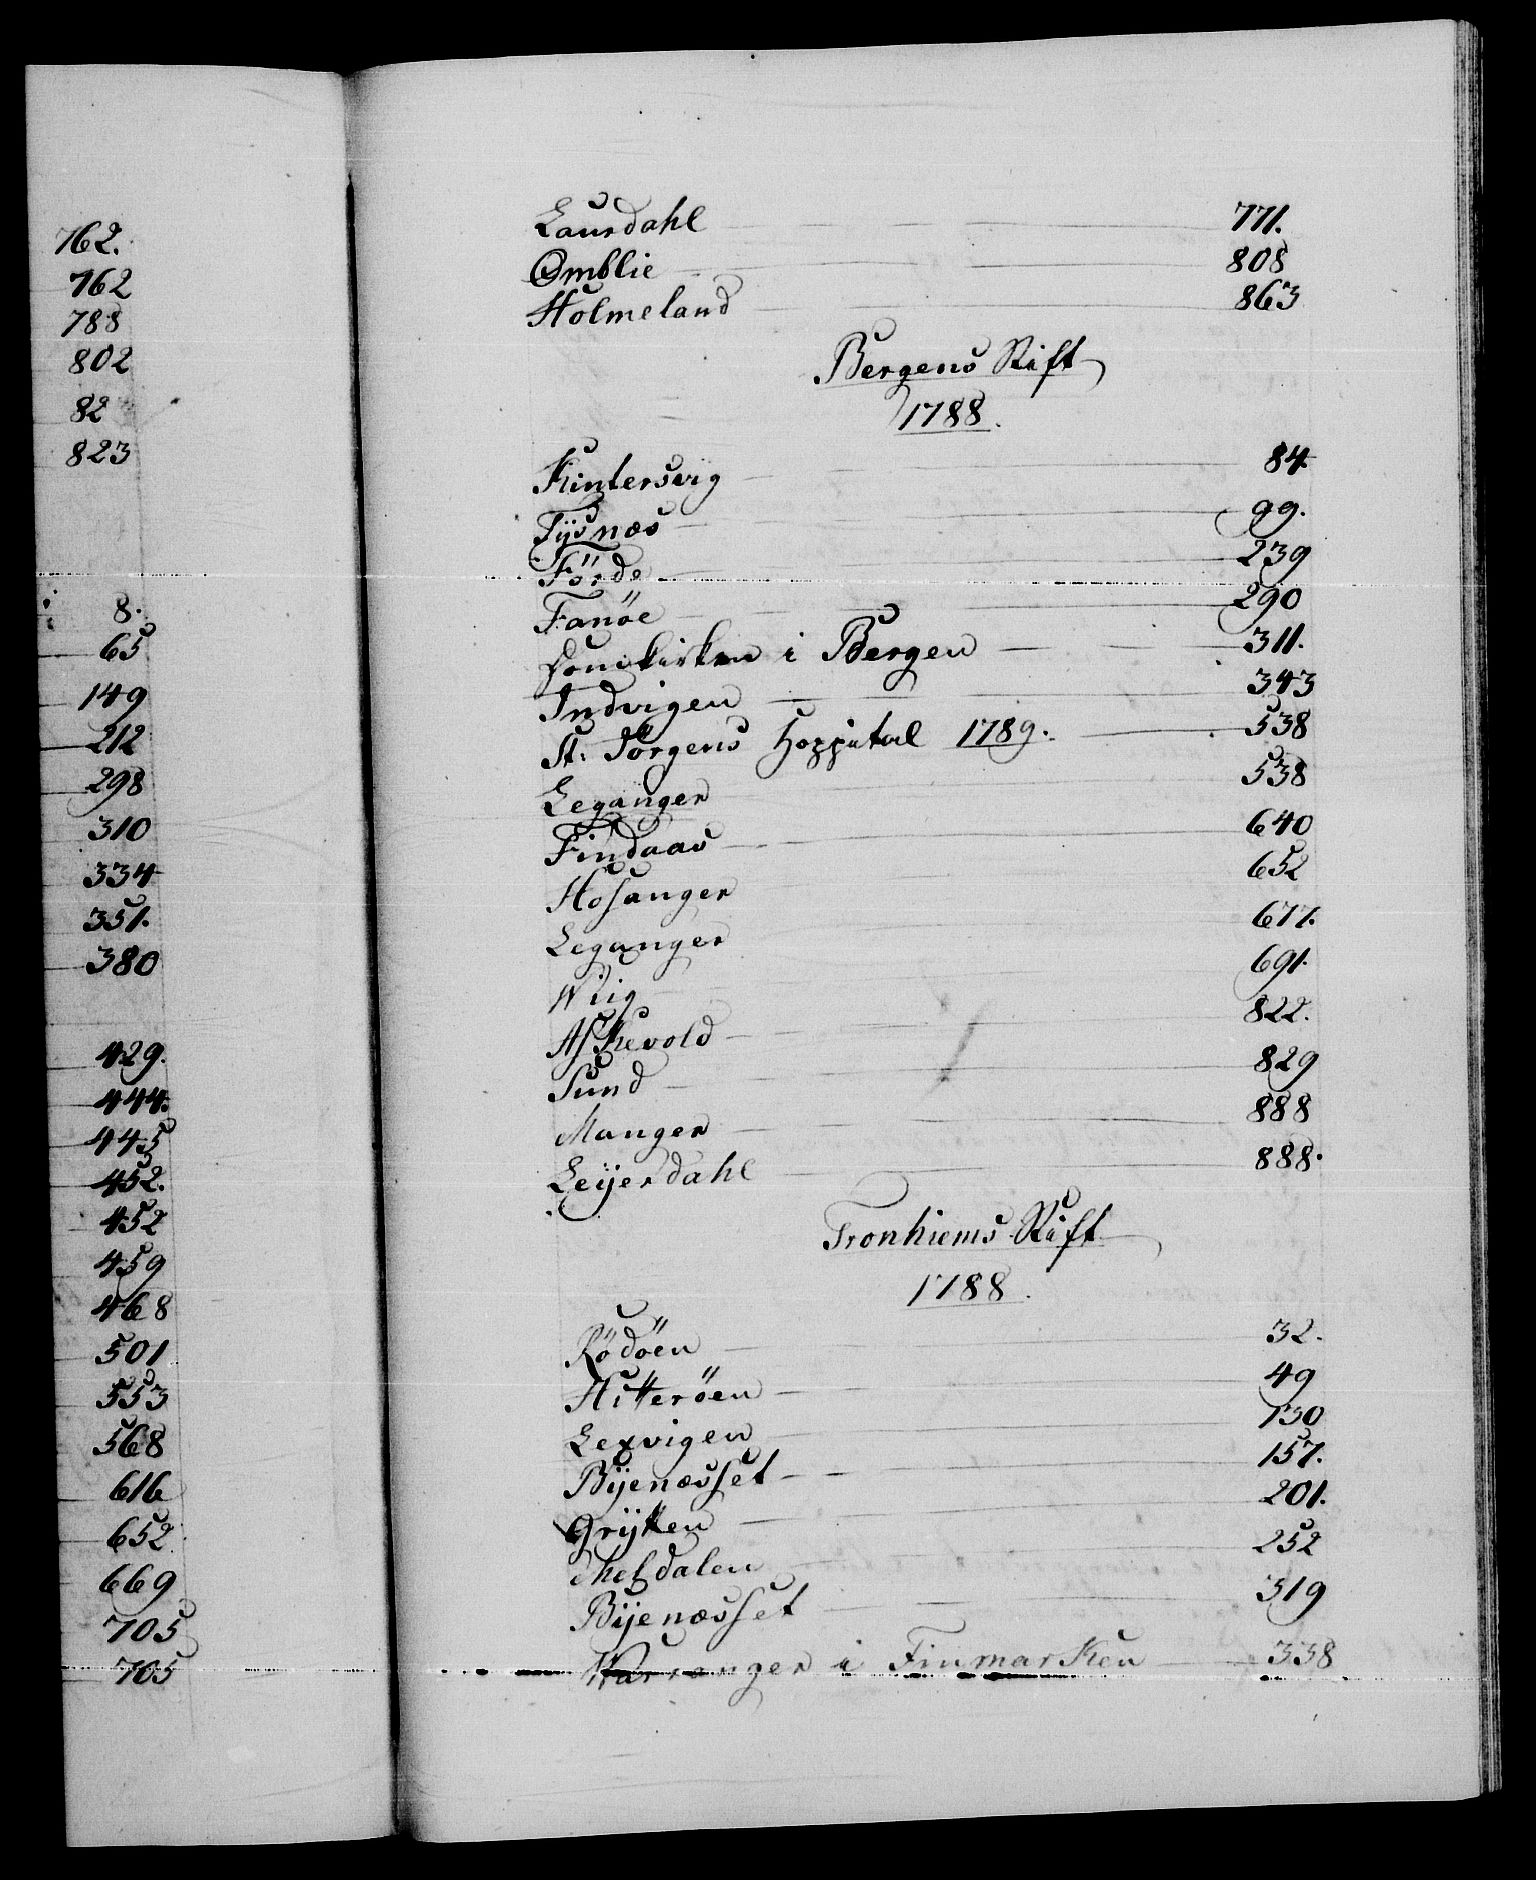 762.
762
788
802
82
823
8.
65
149
212
298
310
334
351.
380
429.
444.
445
452.
452
459
468
501
553
568
616
652
669
705
705
Laurdahl 771.
Omblie 808
Holmeland 863
Bergens Stift
1788.
Kintersvig 84.
Tysnæs 99.
Förde 239
Fanöe 290
Domkirken i Bergen 311.
Indvigen 343
St: Jörgens Hospital 1789. 538
Leganger 538
Findaas 640
Hosanger 652
Leganger 677.
Wiig 691.
Askevold 822.
Sund 829
Manger 888
Leijerdahl 888.
Tronhiems Stift
1788.
Rödöen 32.
Hitteröen 49
Lexvigen 130
Bijenæsset 157.
Grijtten 201.
Meldalen 252
Bijenæsset 319
Warranger i Finmarken 338